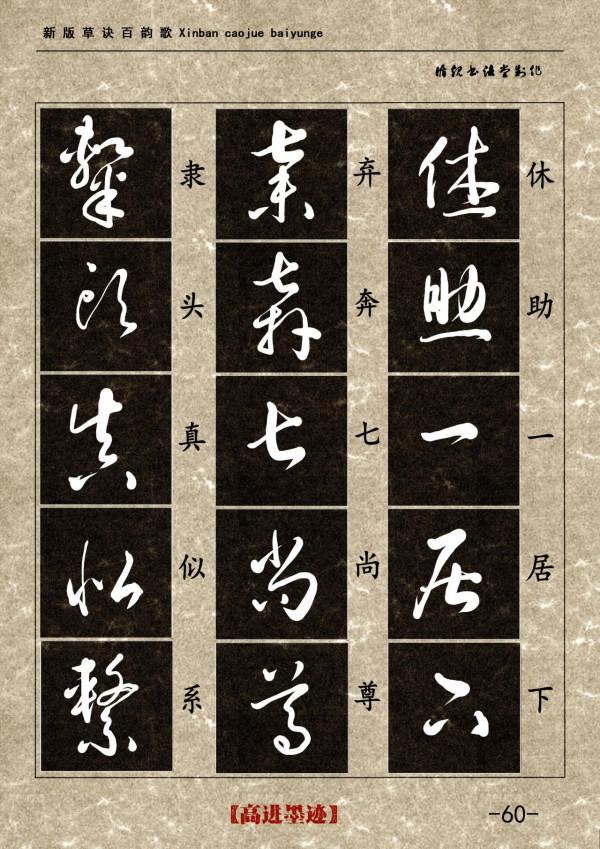 新版草诀百韵歌 Xinban caojue baiyunge
书法堂制作
休助一居下
弃奔七尚尊
隶头真似系
【高进墨迹】
-60-